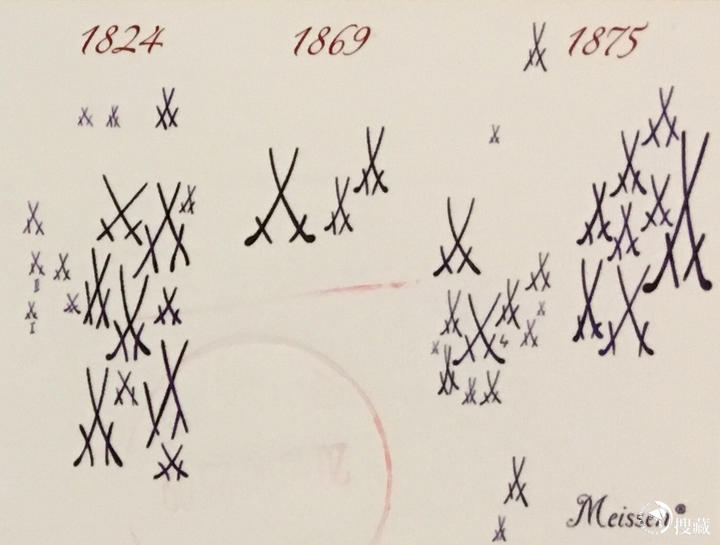 1824 1869 1875
II
I
4
Meissen®
搜藏